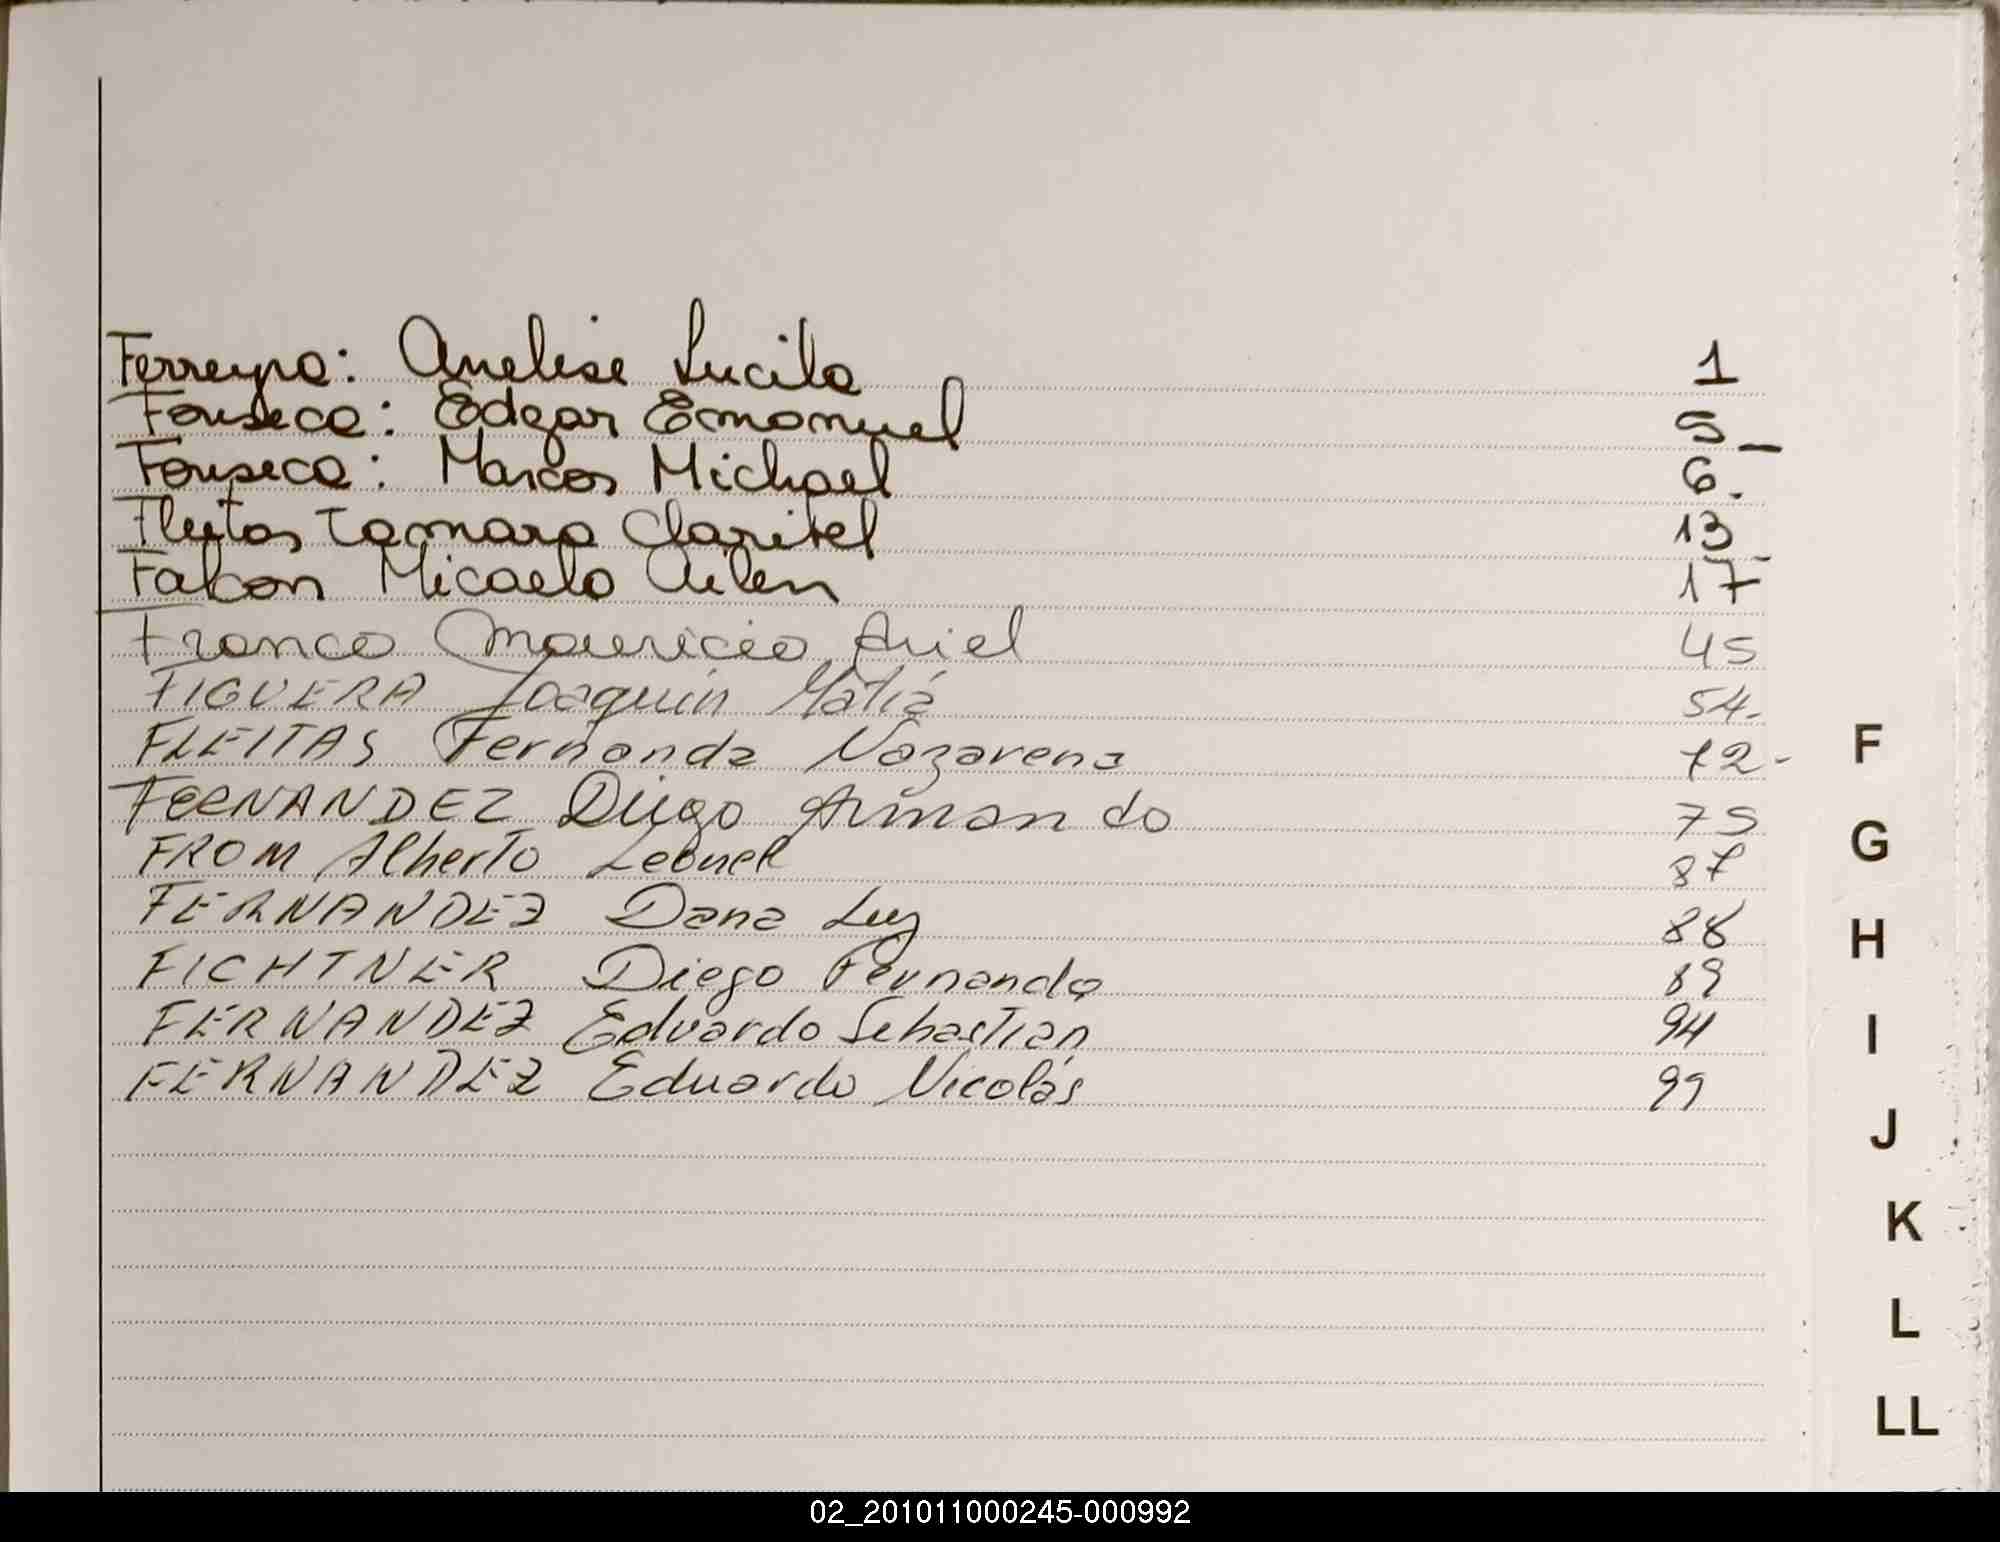 Ferreyra: Analise Lucila 1
Fonseca: Edgar Emanuel 5_
Fonseca: Marcos Michael 6.
Fleitas Tamara Claribel 13
Falcon Micaela Ailen 17
Franco Mauricio Ariel 45
FIGUERA Joaquín Matía 54.
FLEITAS Fernanda Nazarena 72-
FERNANDEZ Diego Armando 75
FROM Alberto Leonel 87
FERNANDEZ Dana Luz 88
FICHTNER Diego Fernando 89
FERNANDEZ Eduardo Sebastian 94
FERNANDEZ Eduardo Nicolás 99
F
G
H
I
J
K
L
LL
02_201011000245-000992